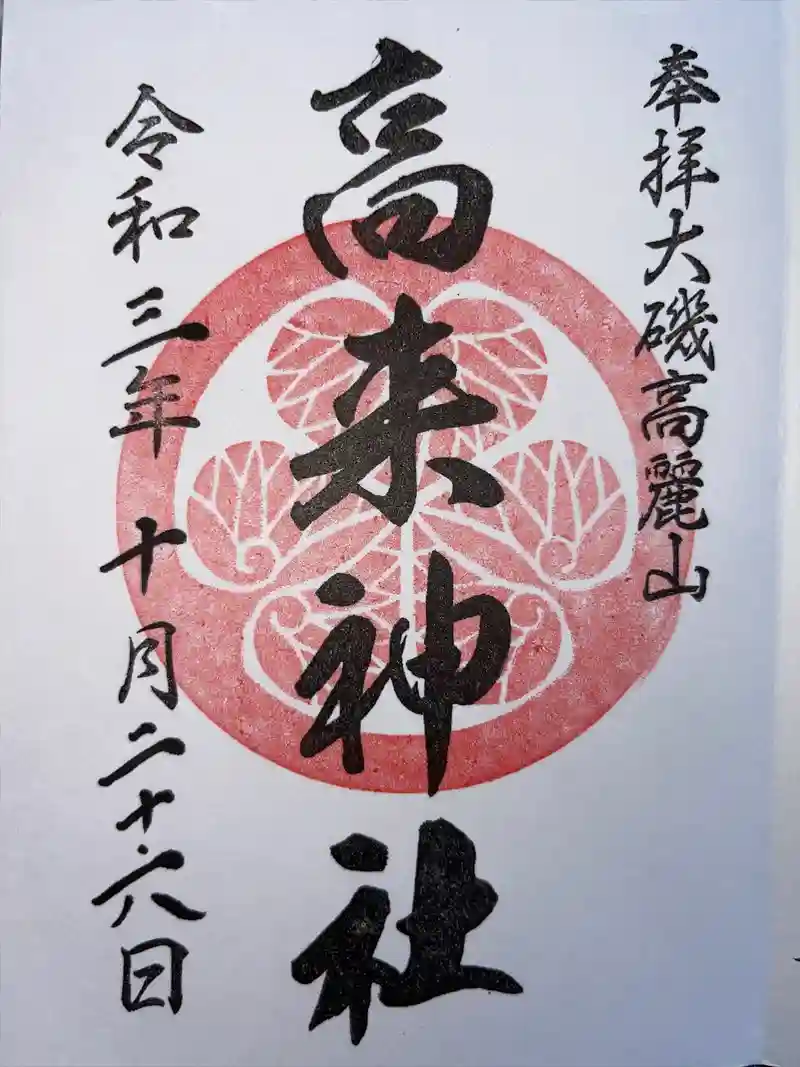 奉拝大磯高麗山
高来神社
令和三年十月二十六日